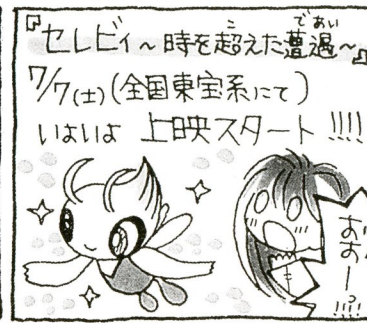 『セレビィ～時を超えた遭遇～』
7/7(土)(全国東宝系にて)
いよいよ 上映スタート!!!!
おおー!!!!